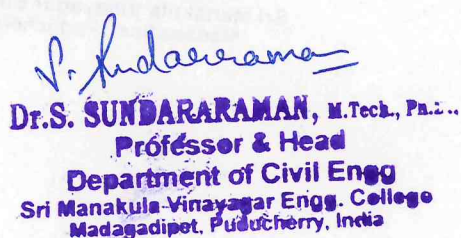 S. Sundararaman
Dr.S. SUNDARARAMAN, M.Tech., Ph.D.,
Professor & Head
Department of Civil Engg
Sri Manakula Vinayagar Engg. College
Madagadipet, Puducherry, India